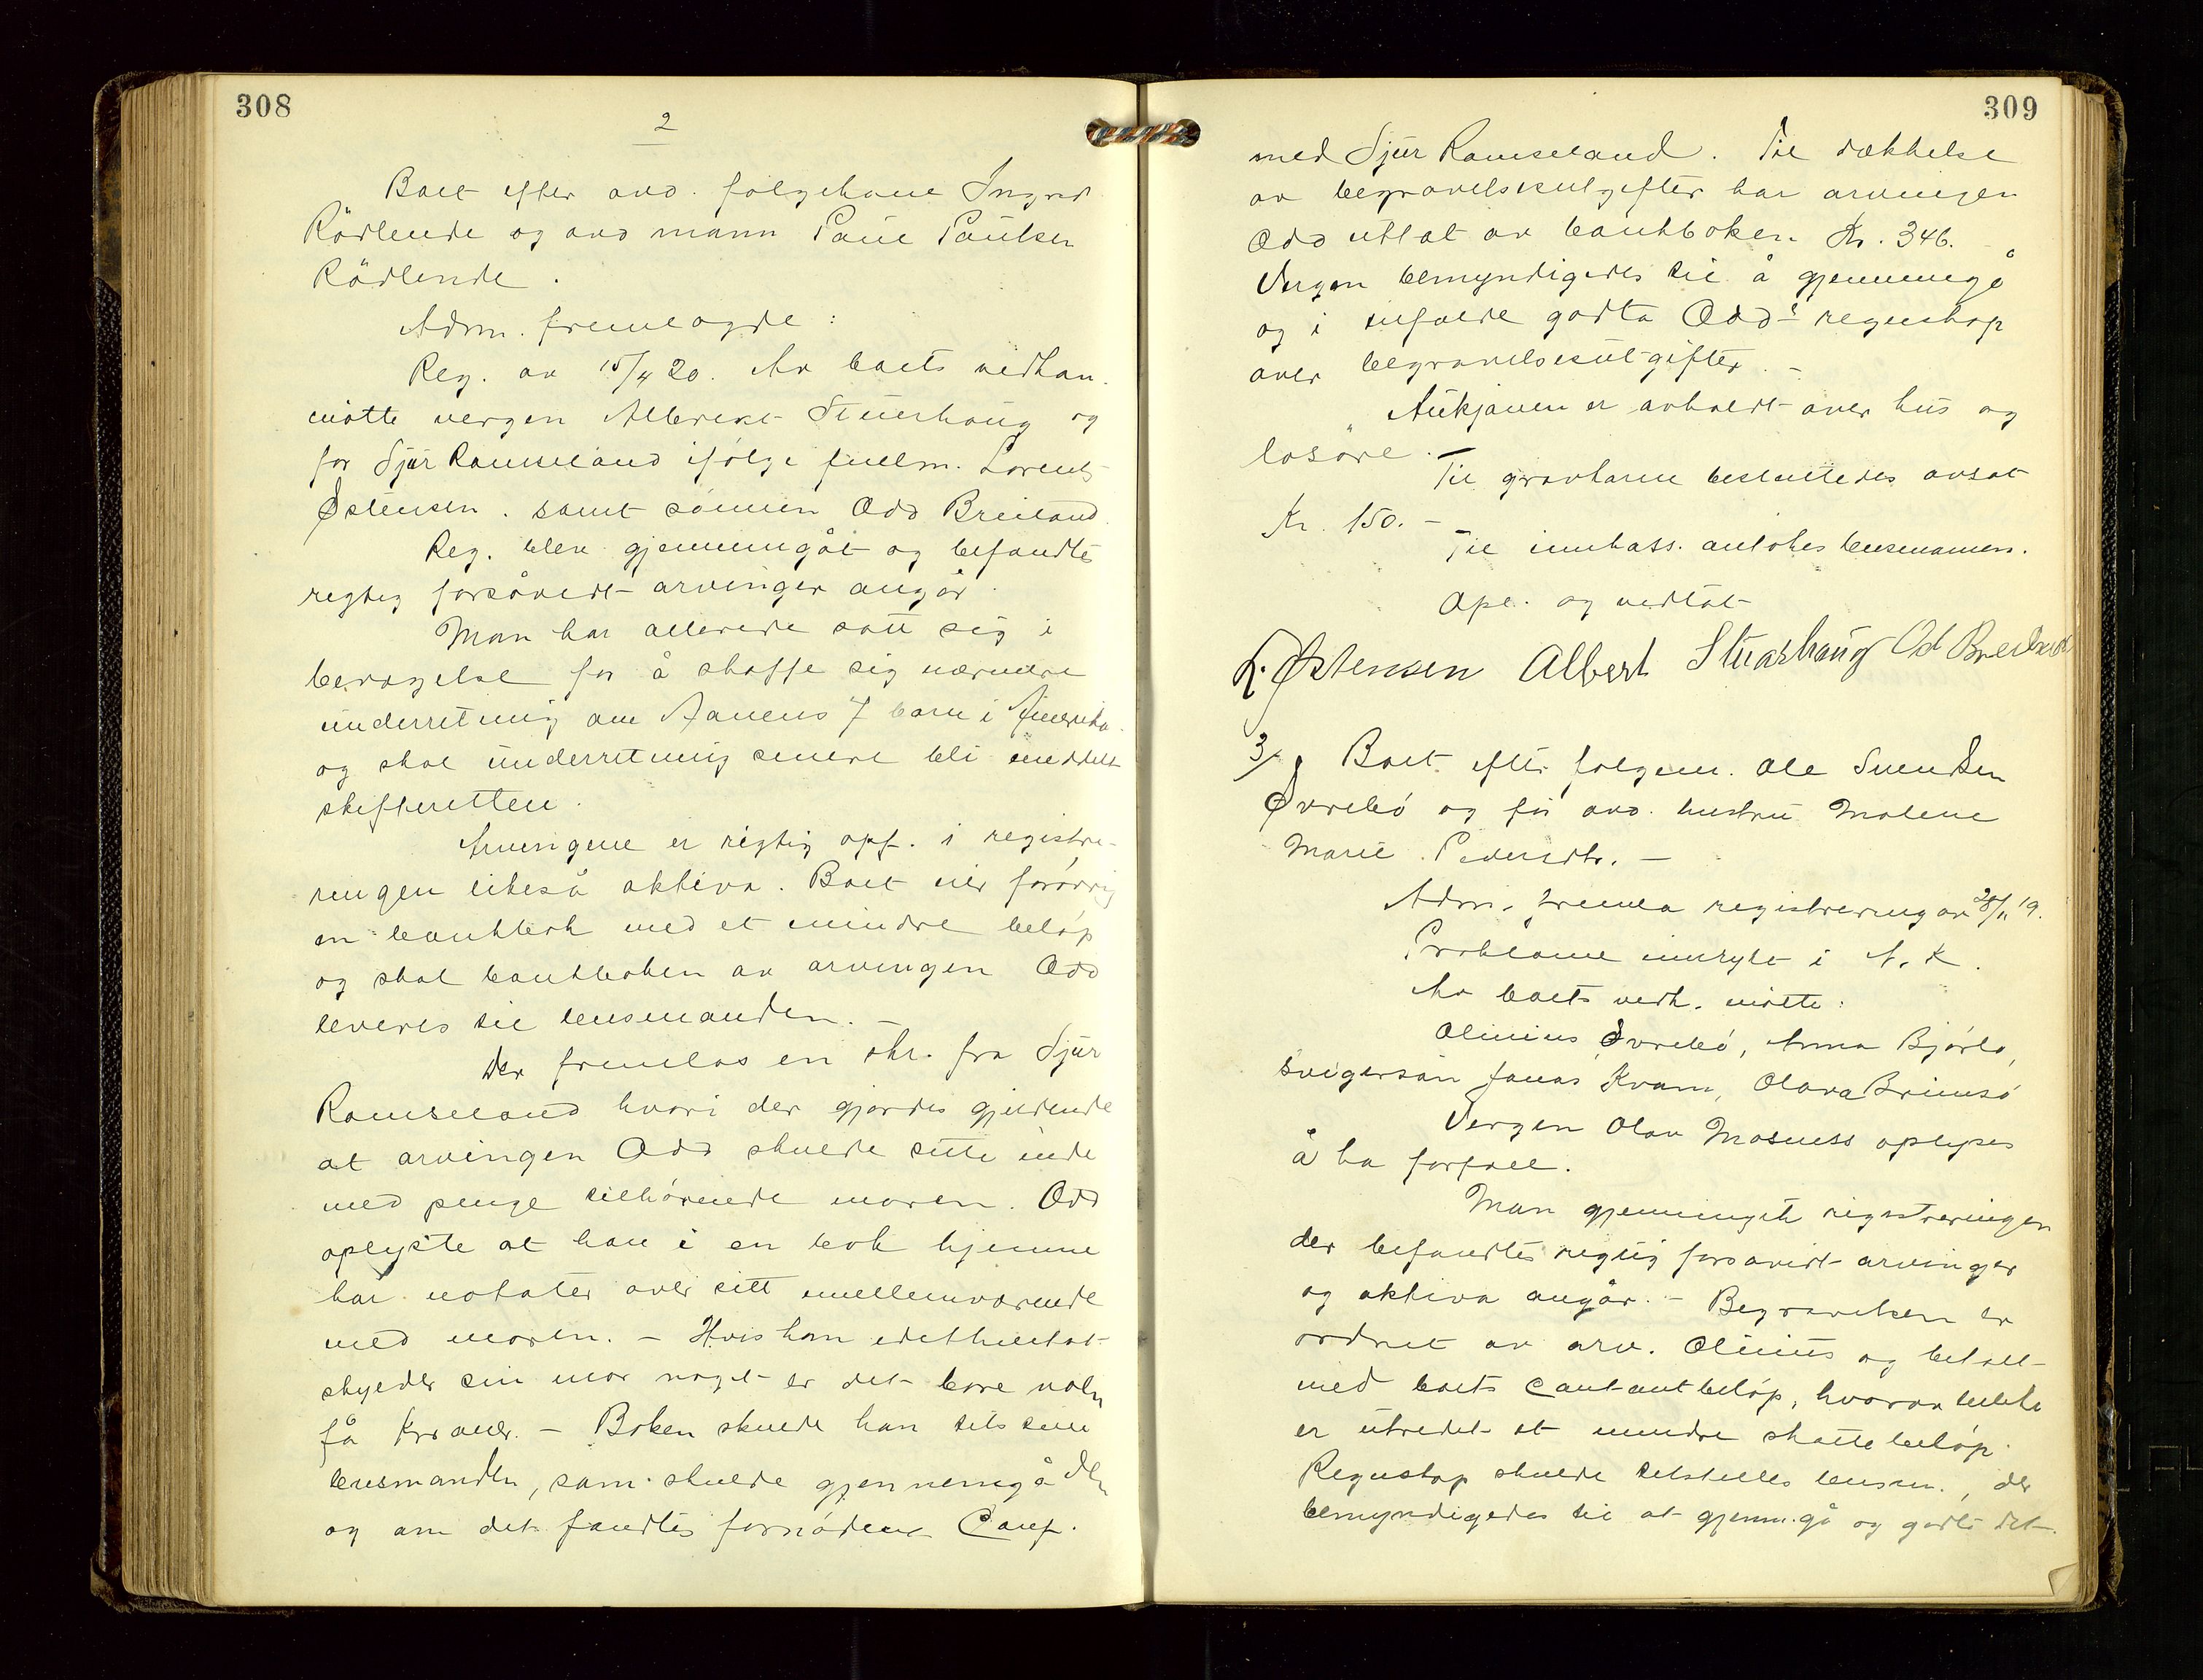 308
2
Boet efter avd. følgekone Ingrid
Rödlende og avd mann Paul Paulsen
Rödlende.
Adm. fremlagde:
Reg. av 15/4 20. Av boets vedkom.
mötte vergen Albrekt Stuerhaug og
for Sjur Ramseland ifølge fullm. Lorents
Østensen. samt sönnen Odd Breiland.
Reg. blev gjennemgåt og befandtes
regtig forsåvidt arvinger angår.
Man har allerede satt sig i
bevægelse for å skaffe sig nærmere
underretning om 7 barn i Amerika.
og skal underretning senere bli meddelt
skifteretten.
Arvingene er rigtig opf. i registre-
ringen likeså aktiva. Boet eier forövrig
en bankbok med et mindre belöp
og skal bankboken av arvingen Odd
leveres til lensmanden. -
Der fremlas en skr. fra Sjur
Ramseland hvori der gjordes gjeldende
at arvingen Odd skulde sitte inde
med penge tilhörende moren. Odd
oplyste at han i en bok hjemme
har notater over sitt mellemværende
med moren. - Hvis han idethentat
skylder sin mor noget er det bare nolen
få Kroner. - Boken skulde han
lensmanden, som skulde gjennemgå den
og om det fandtes fornödent Conf.
309
med Sjur Ramseland. Til dækkelse
av begravelsesutgifter har arvingen
Odd uttat av bankboken Kr. 346. -
Vergen bemyndigedes til å gjennemgå
og i tilfælde godta Odds regnskap
over begravelsesutgifter. -
Auksjonen er avholdt over hus og
lösöre.
Til gravkarm besluttedes avsat
Kr. 150. -
Til innkass. antokes lensmannen.
Opl. og vedtat
L. Østensen Albert Stuarhaug Od Breiland
3/ Boet efter følgem. Ole Svendsen
Øvrebö og før avd. hustru Malene
Marie Pedersdtr. -
Adm. fremla registrering av 28/11 19.
Proklama innrykt i N. K.
Av boets vedk. mötte:
Olinius Øvrebö, Anna Bjørlo,
Svigersön Jonas Kvam, Olava Brimsö
Vergen Olav Mosness oplyses
å ha forfall.
Man gjennemgik registreringen
der befandtes rigtig forsåvidt arvinger
og aktiva angår. - Begravelsen er
ordnet av arv. Olinius og betalt
med boets Contantbelöp, hvorav
er utredet et mindre skattebelöp.
Regnskap skulde tilstilles lensm., der
bemyndigedes til at gjenm.gå og godta det.